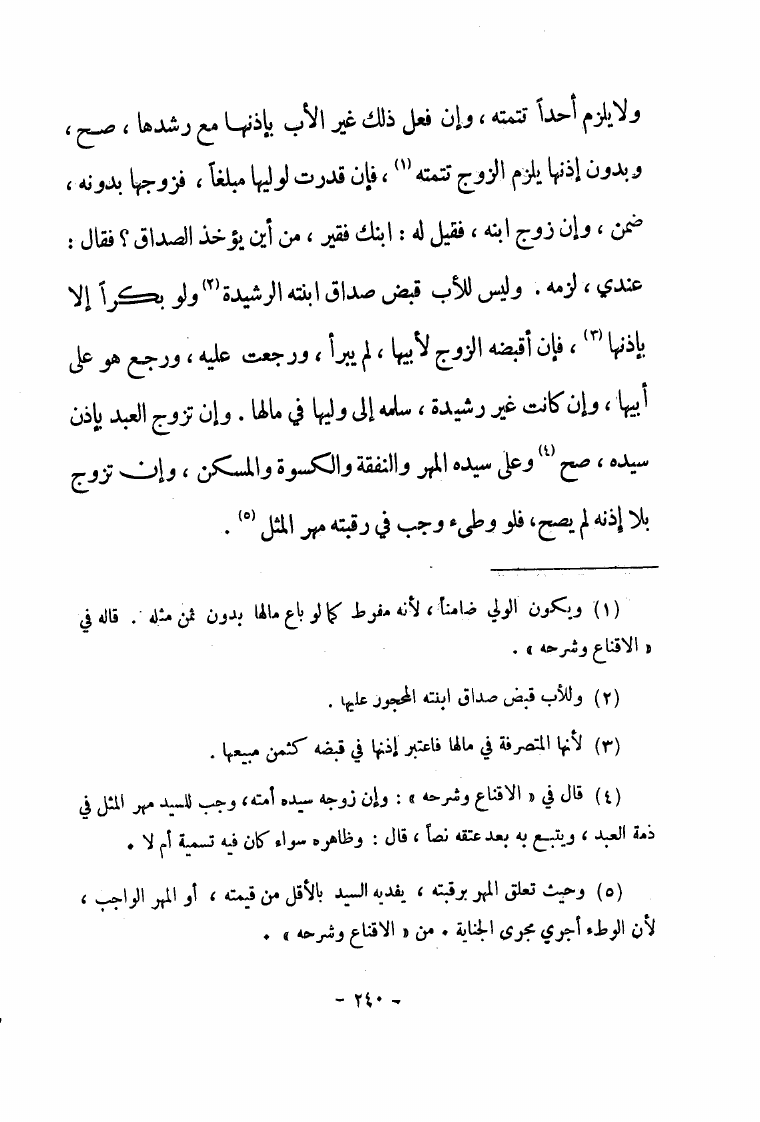 ولا يلزم أحداً تتمته ، وإن فعل ذلك غير الأب بإذنها مع رشدها ، صح ،
وبدون إذنها يلزم الزوج تتمته (١) ، فإن قدرت لوليها مبلغاً ، فزوجها بدونه ،
ضمن ، وإن زوج ابنه ، فقيل له : ابنك فقير ، من أين يؤخذ الصداق ؟ فقال :
عندي ، لزمه . وليس للأب قبض صداق ابنته الرشيدة (٢) ولو بكراً إلا
بإذنها (٣) ، فإن أقبضه الزوج لأبيها ، لم يبرأ ، ورجعت عليه ، ورجع هو على
أبيها ، وإن كانت غير رشيدة ، سلمه إلى وليها في مالها . وإن تزوج العبد بإذن
سيده ، صح (٤) وعلى سيده المهر والنفقة والكسوة والمسكن ، وإن تزوج
بلا إذنه لم يصح ، فلو وطىء وجب في رقبته مهر المثل (٥) .
(١) ويكون الولي ضامناً ، لأنه مفوط كما لو باع مالها بدون ثمن مثله . قاله في
« الاقناع وشرحه » .
(٢) وللأب قبض صداق ابنته المحجور عليها .
(٣) لأنها المتصرفة في مالها فاعتبر إذنها في قبضه كثمن مبيعها .
(٤) قال في « الاقناع وشرحه » : وإن زوجه سيده أمته ، وجب للسيد مهر المثل في
ذمة العبد ، ويتبع به بعد عتقه نصاً ، قال : وظاهره سواء كان فيه تسمية أم لا .
(٥) وحيث تعلق المهر برقبته ، يفديه السيد بالأقل من قيمته ، أو المهر الواجب ،
لأن الوطء أجوي مجوى الجناية . من « الاقناع وشرحه » .
- ٢٤٠ -